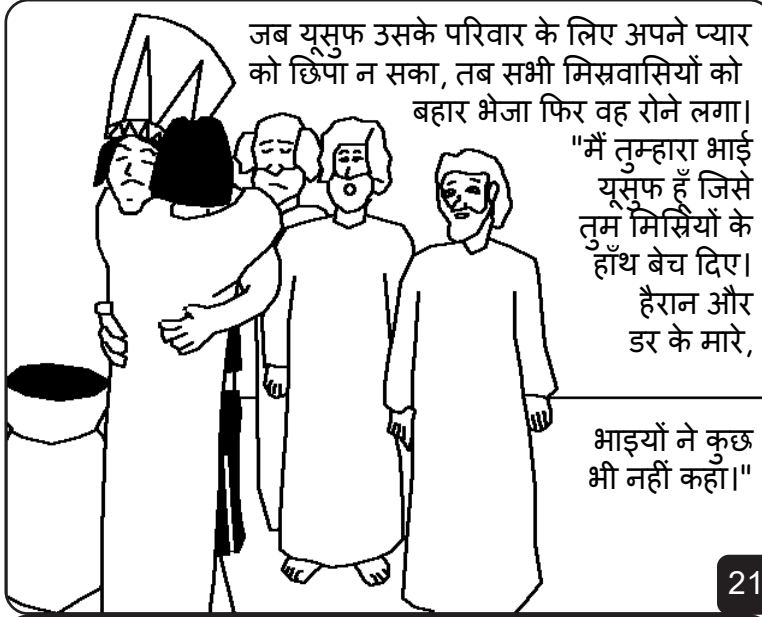 जब यूसुफ उसके परिवार के लिए अपने प्यार
को छिपा न सका, तब सभी मिस्रवासियों को
बहार भेजा फिर वह रोने लगा।
"मैं तुम्हारा भाई
यूसुफ हूँ जिसे
तुम मिस्रियों के
हाँथ बेच दिए।
हैरान और
डर के मारे,
भाइयों ने कुछ
भी नहीं कहा।"
21